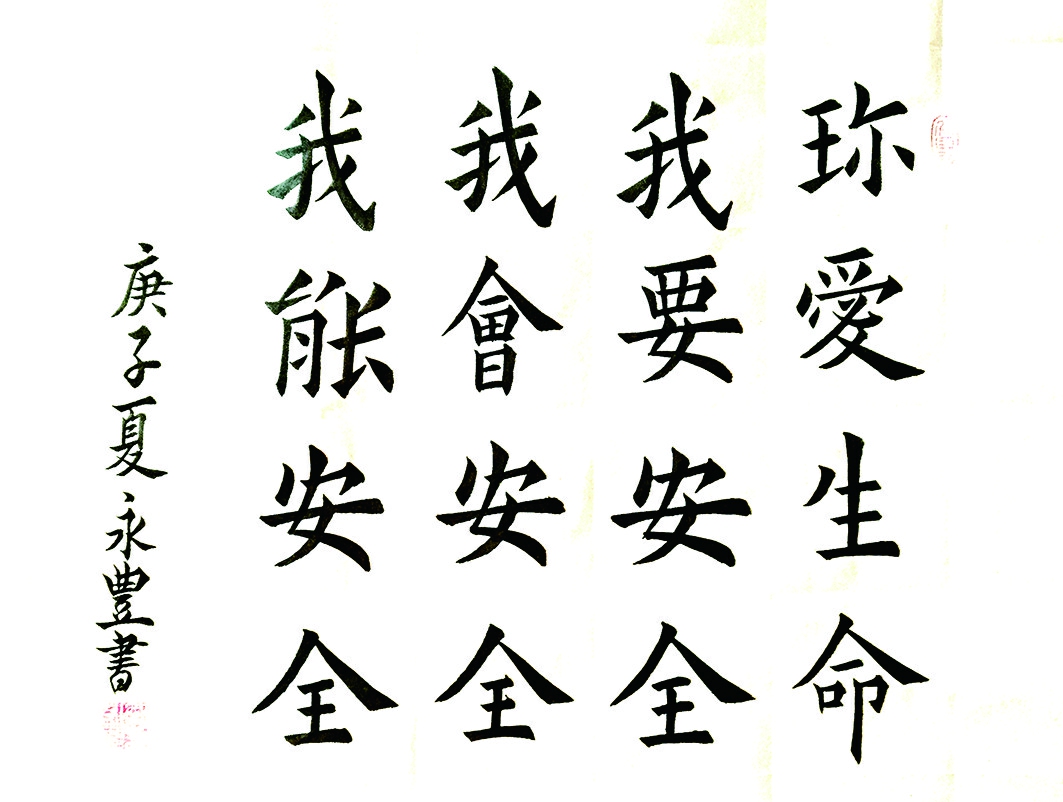 珎愛生命
我要安全
我會安全
我能安全
庚子夏永豐書